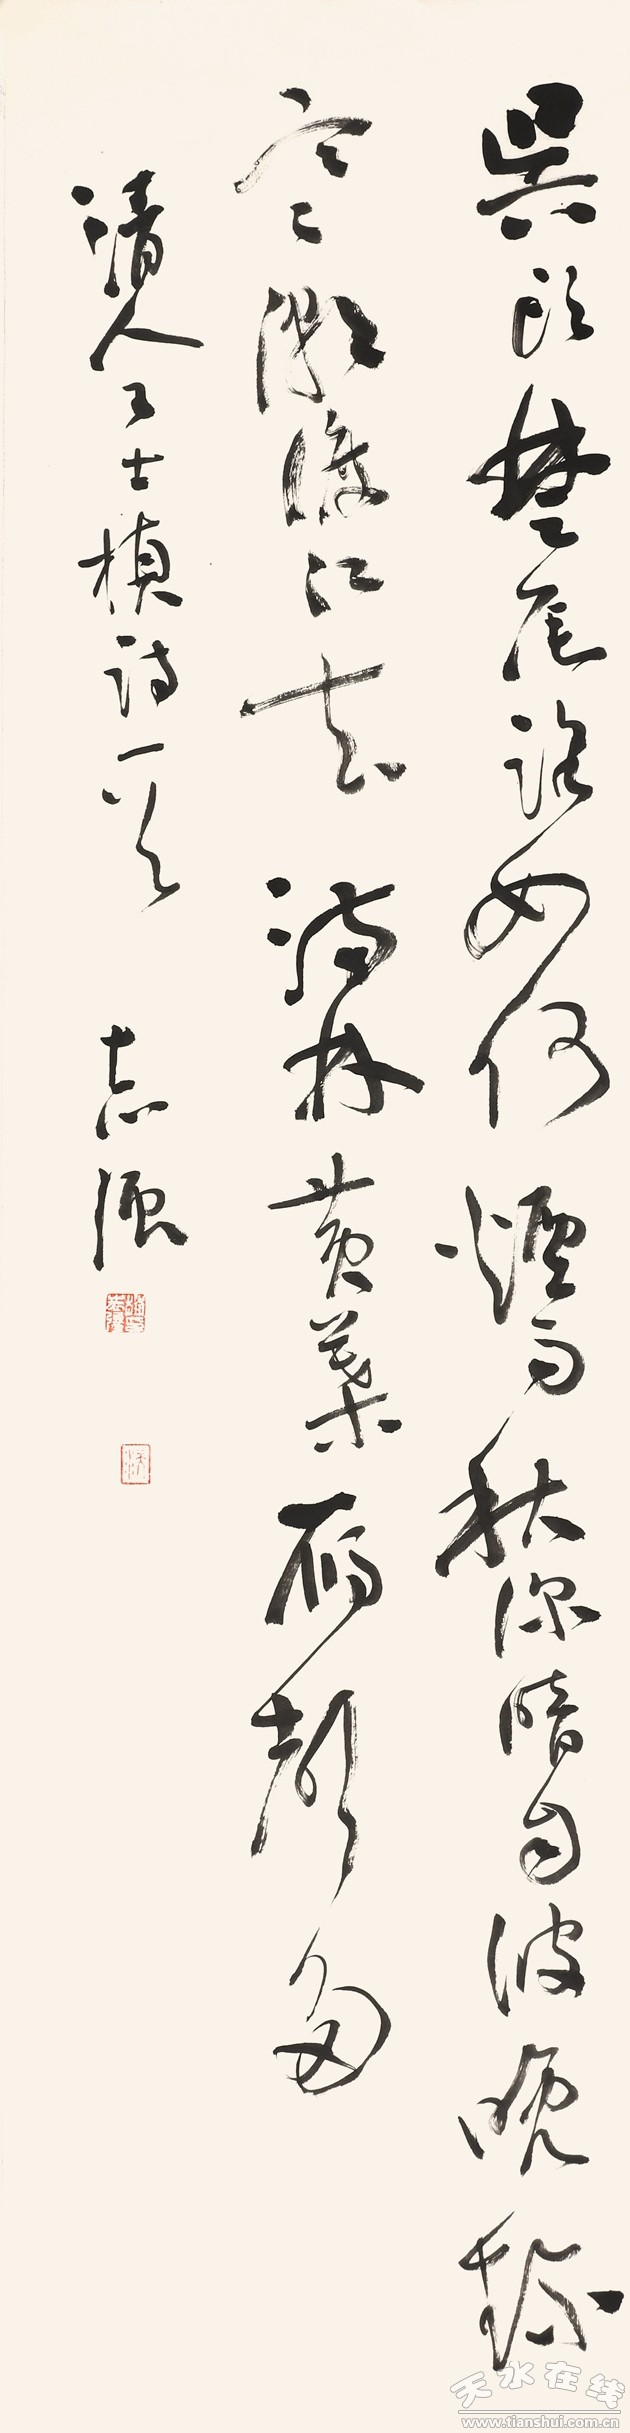 吳頭楚尾路如何煙雨秋深暗白波晚趁
寒潮渡江去滿林黄葉雁聲多
清人王士楨詩一首 志
天水在线
www.tianshui.com.cn